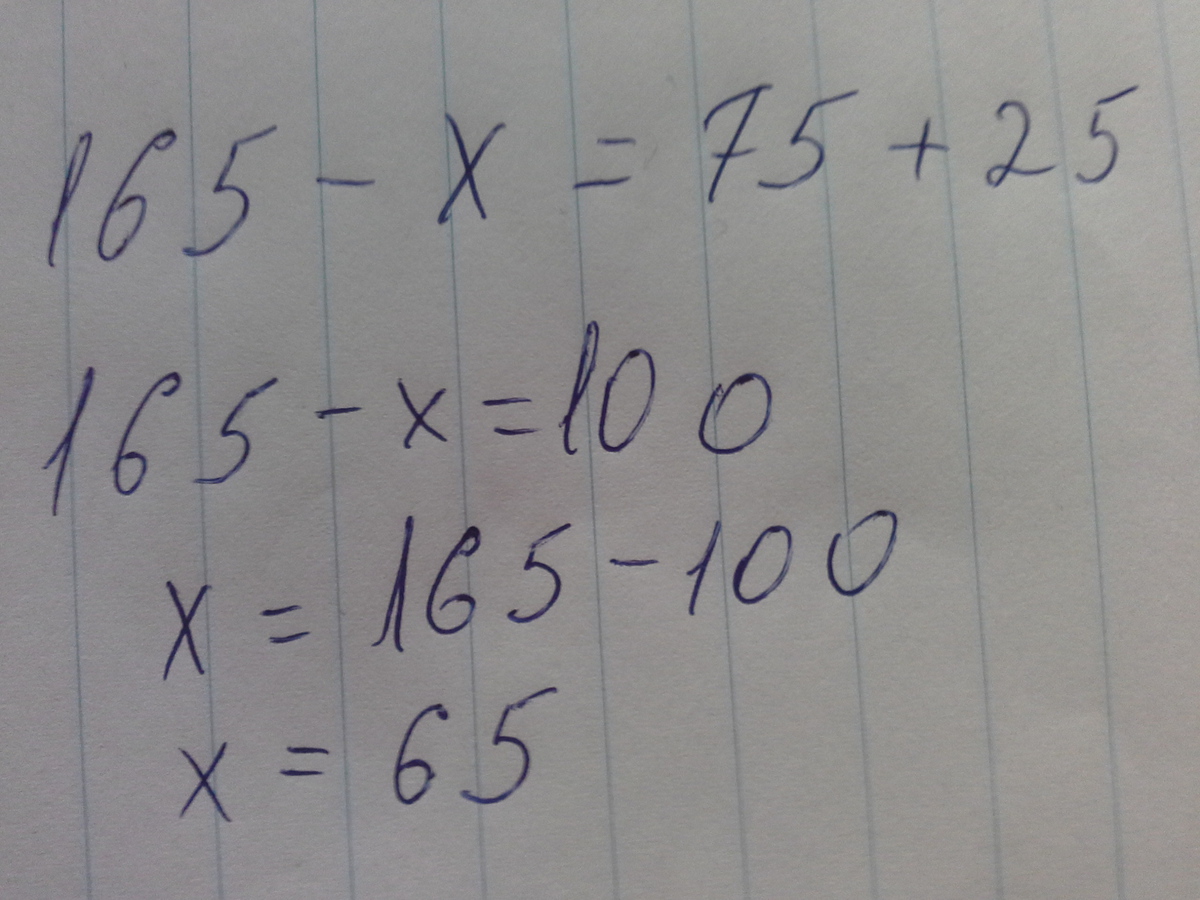 165 - x = 75 + 25
165 - x = 100
x = 165 - 100
x = 65